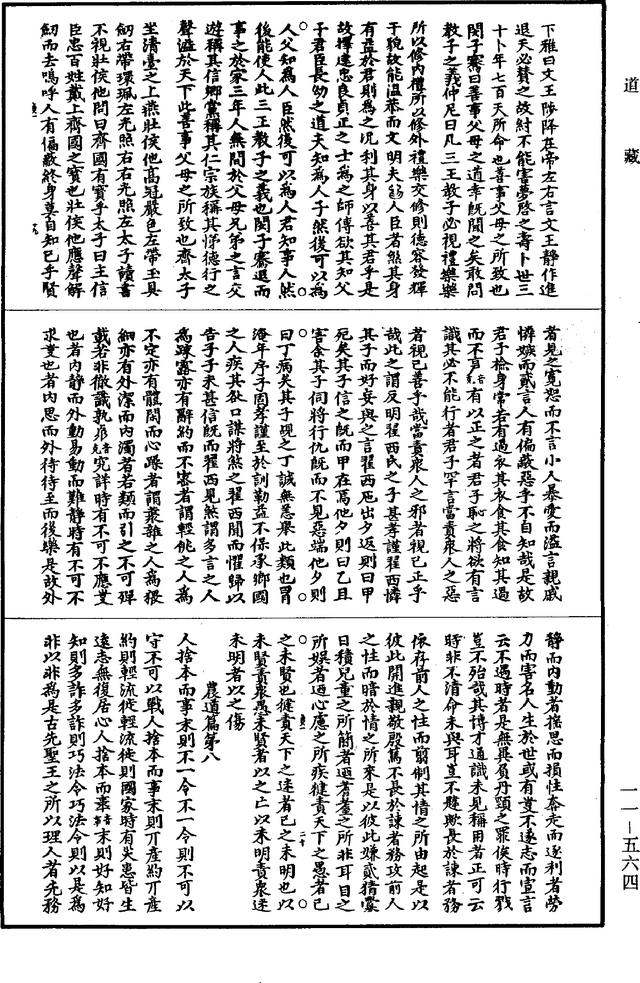 下雅曰文王陟降在帝左右言文王靜作進
退天必贊之故紂不能害夢啓之壽卜世三
十卜年七百天所命也善事父母之所致也
閔子騫曰善事父母之道幸既聞之矣敢問
教子之義仲尼曰凡三王教子必視禮樂樂
所以修內禮所以修外禮樂交修則德容發輝
于貌故能溫恭而文明夫爲人臣者煞其身
有益於君則爲之况利其身以善其君乎是
故擇建忠良貞正之士爲之師傅欲其知父
子君臣長幼之道夫知爲人子然後可以爲
人父知爲人臣然後可以爲人君知事人然
後能使人此三王教子之義也閔子騫退而
事之於家三年人無間於父母兄弟之言交
遊稱其信鄉黨稱其仁宗族稱其悌德行之
聲溢於天下此善事父母之所致也齊太子
坐清臺之上燕莊侯他高冠嚴色左帶玉具
劒右帶環珮左光照右右光照左太子讀書
不視莊侯他問曰齊國有寶乎太子曰主信
臣忠百姓戴上齊國之寶也莊侯他應聲解
劒而去嗚呼人有偏蔽終身莫自知己乎賢
者見之寬恕而不言小人暴愛而溢言親戚
憐嫉而貳言人有偏蔽惡乎不自知哉是故
君子檢身常若有過衣其衣食其食知其過
而不言有以正之者君子恥之將欲有言
識其必不能行者君子罕言當責衆人之惡
者視己善乎哉當責衆人之邪者視己正乎
哉此之謂反明翟西氏之子甚孝謹翟西憐
其子而好妄與之言翟西巵出夕返則曰甲
死矣其子信之既而甲在焉他夕則曰乙且
害余其子伺將行仇既而不見惡端他夕則
曰丁病矣其子覘之丁誠無恙舉此類也
淹年序子固孝謹至於訓勒益不保承鄉國
之人疾其欲口謀將煞之翟西聞而懼歸以
告子子未甚信既而翟西見煞謂多言之人
爲疎露亦有辭約而不密者謂輕佻之人爲
不定亦有體閑而心躁者謂叢雜之人爲猥
細亦有外潔而內濁者若類而引之不可殫
載若非徹識孰究詳時有不可不應
也者內靜而外動易動而難靜時有不可不
求也者內思而外待待至而後樂是故外
靜而內動者搖思而損性奔走而逐利者勞
力而害名人生於世或有不遂志而宣言
云不遇時者是無異負丹頸之罪俟時行戮
豈不殆哉其博才通識未見稱用者正可云
時非不清命未與耳豈不韙歟長於諫者務
依存前人之性而翦制其情之所由起是以
彼此開進親敬殷篤不長於諫者務攻前人
之性而暗於情之所來是以彼此嫌貳猜釁
日積兒童之所簡者迺耆耋之所非耳目之
所娛者迺心慮之所疾徤責天下之愚者己
之未賢也徤責天下之迷者己之未明也以
未賢責衆愚未賢者以之亡以未明責衆迷
未明者以之傷
農道篇第八
人捨本而事末則不一令不一令則不可以
守不可以戰人捨本而事末則丌產約丌產
約則輕流徙輕流徙則國家時有災患皆生
遠志無復居心人捨本而事末則好知好
知則多詐多詐則巧法令巧法令則以是爲
非以非爲是古先聖王之所以理人者先務
道藏
一一—五六四